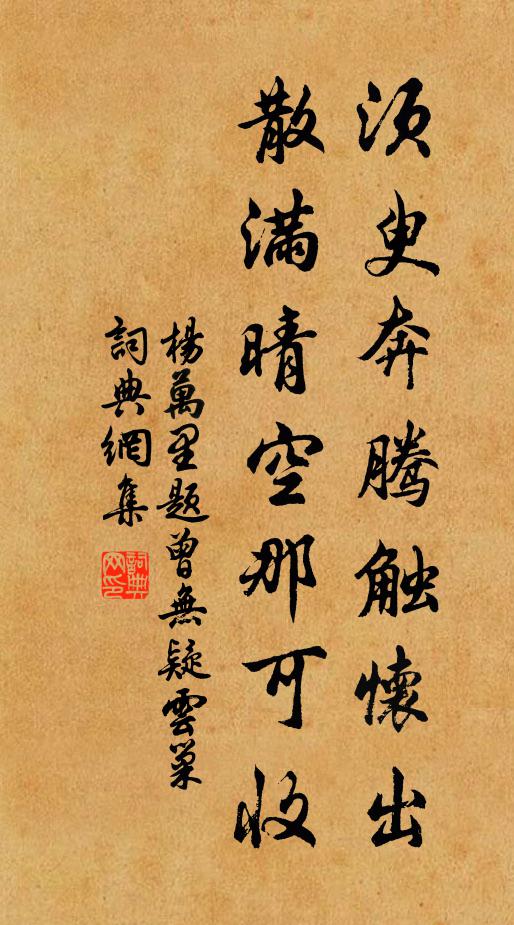 须臾奔腾触懷出
散滿晴空那可收
楊萬里题曾無疑雲巢
詞典網集
詞典網印